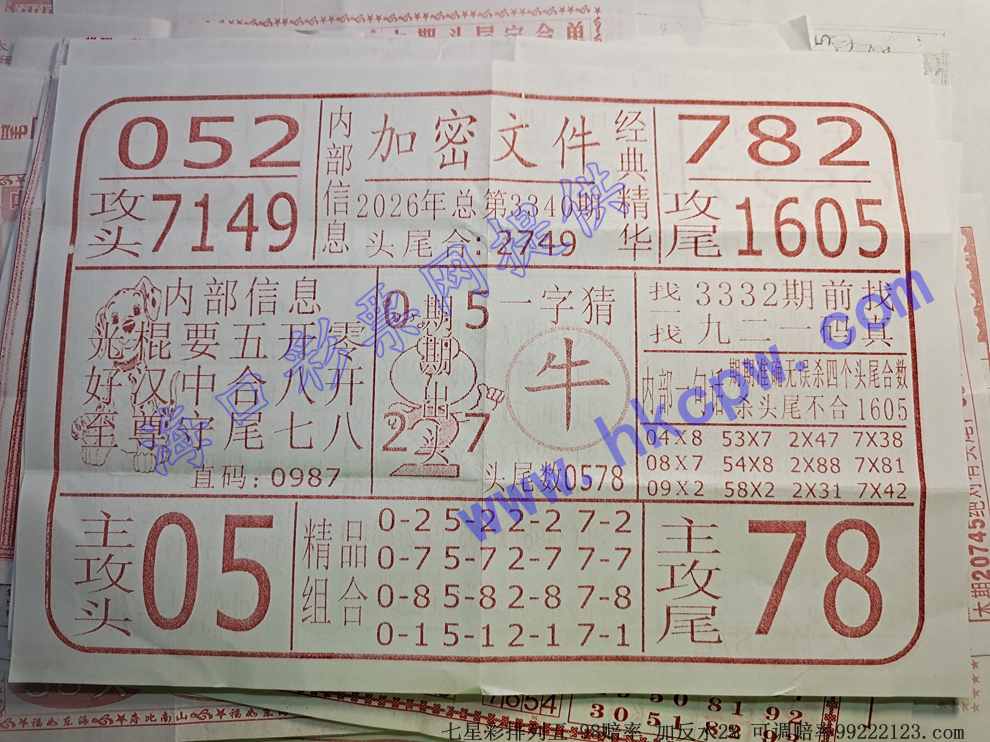 052
攻头 7149
内部信息
加密文件
2026年总第3340期
头尾合:2749
经典精华
782
攻尾 1605
内部信息
光棍要五开零
好汉中合八开
至尊定尾七八
直码:0987
0期5
期
出
2头7
一字猜
牛
头尾数0578
找3332期前找
找九二一码真
内部一句话
期期准确无误杀四个头尾合数
杀头尾不合1605
04X8 53X7 2X47 7X38
08X7 54X8 2X88 7X81
09X2 58X2 2X31 7X42
主攻头
05
精品组合
0-2 5-2 2-2 7-2
0-7 5-7 2-7 7-7
0-8 5-8 2-8 7-8
0-1 5-1 2-1 7-1
主攻尾
78
海口彩票网提供
www.hkcpw.com
本期20745
福如东海 寿比南山 福如东海
七星彩排列五-98赔率 加反水28 可调赔率99222123.com